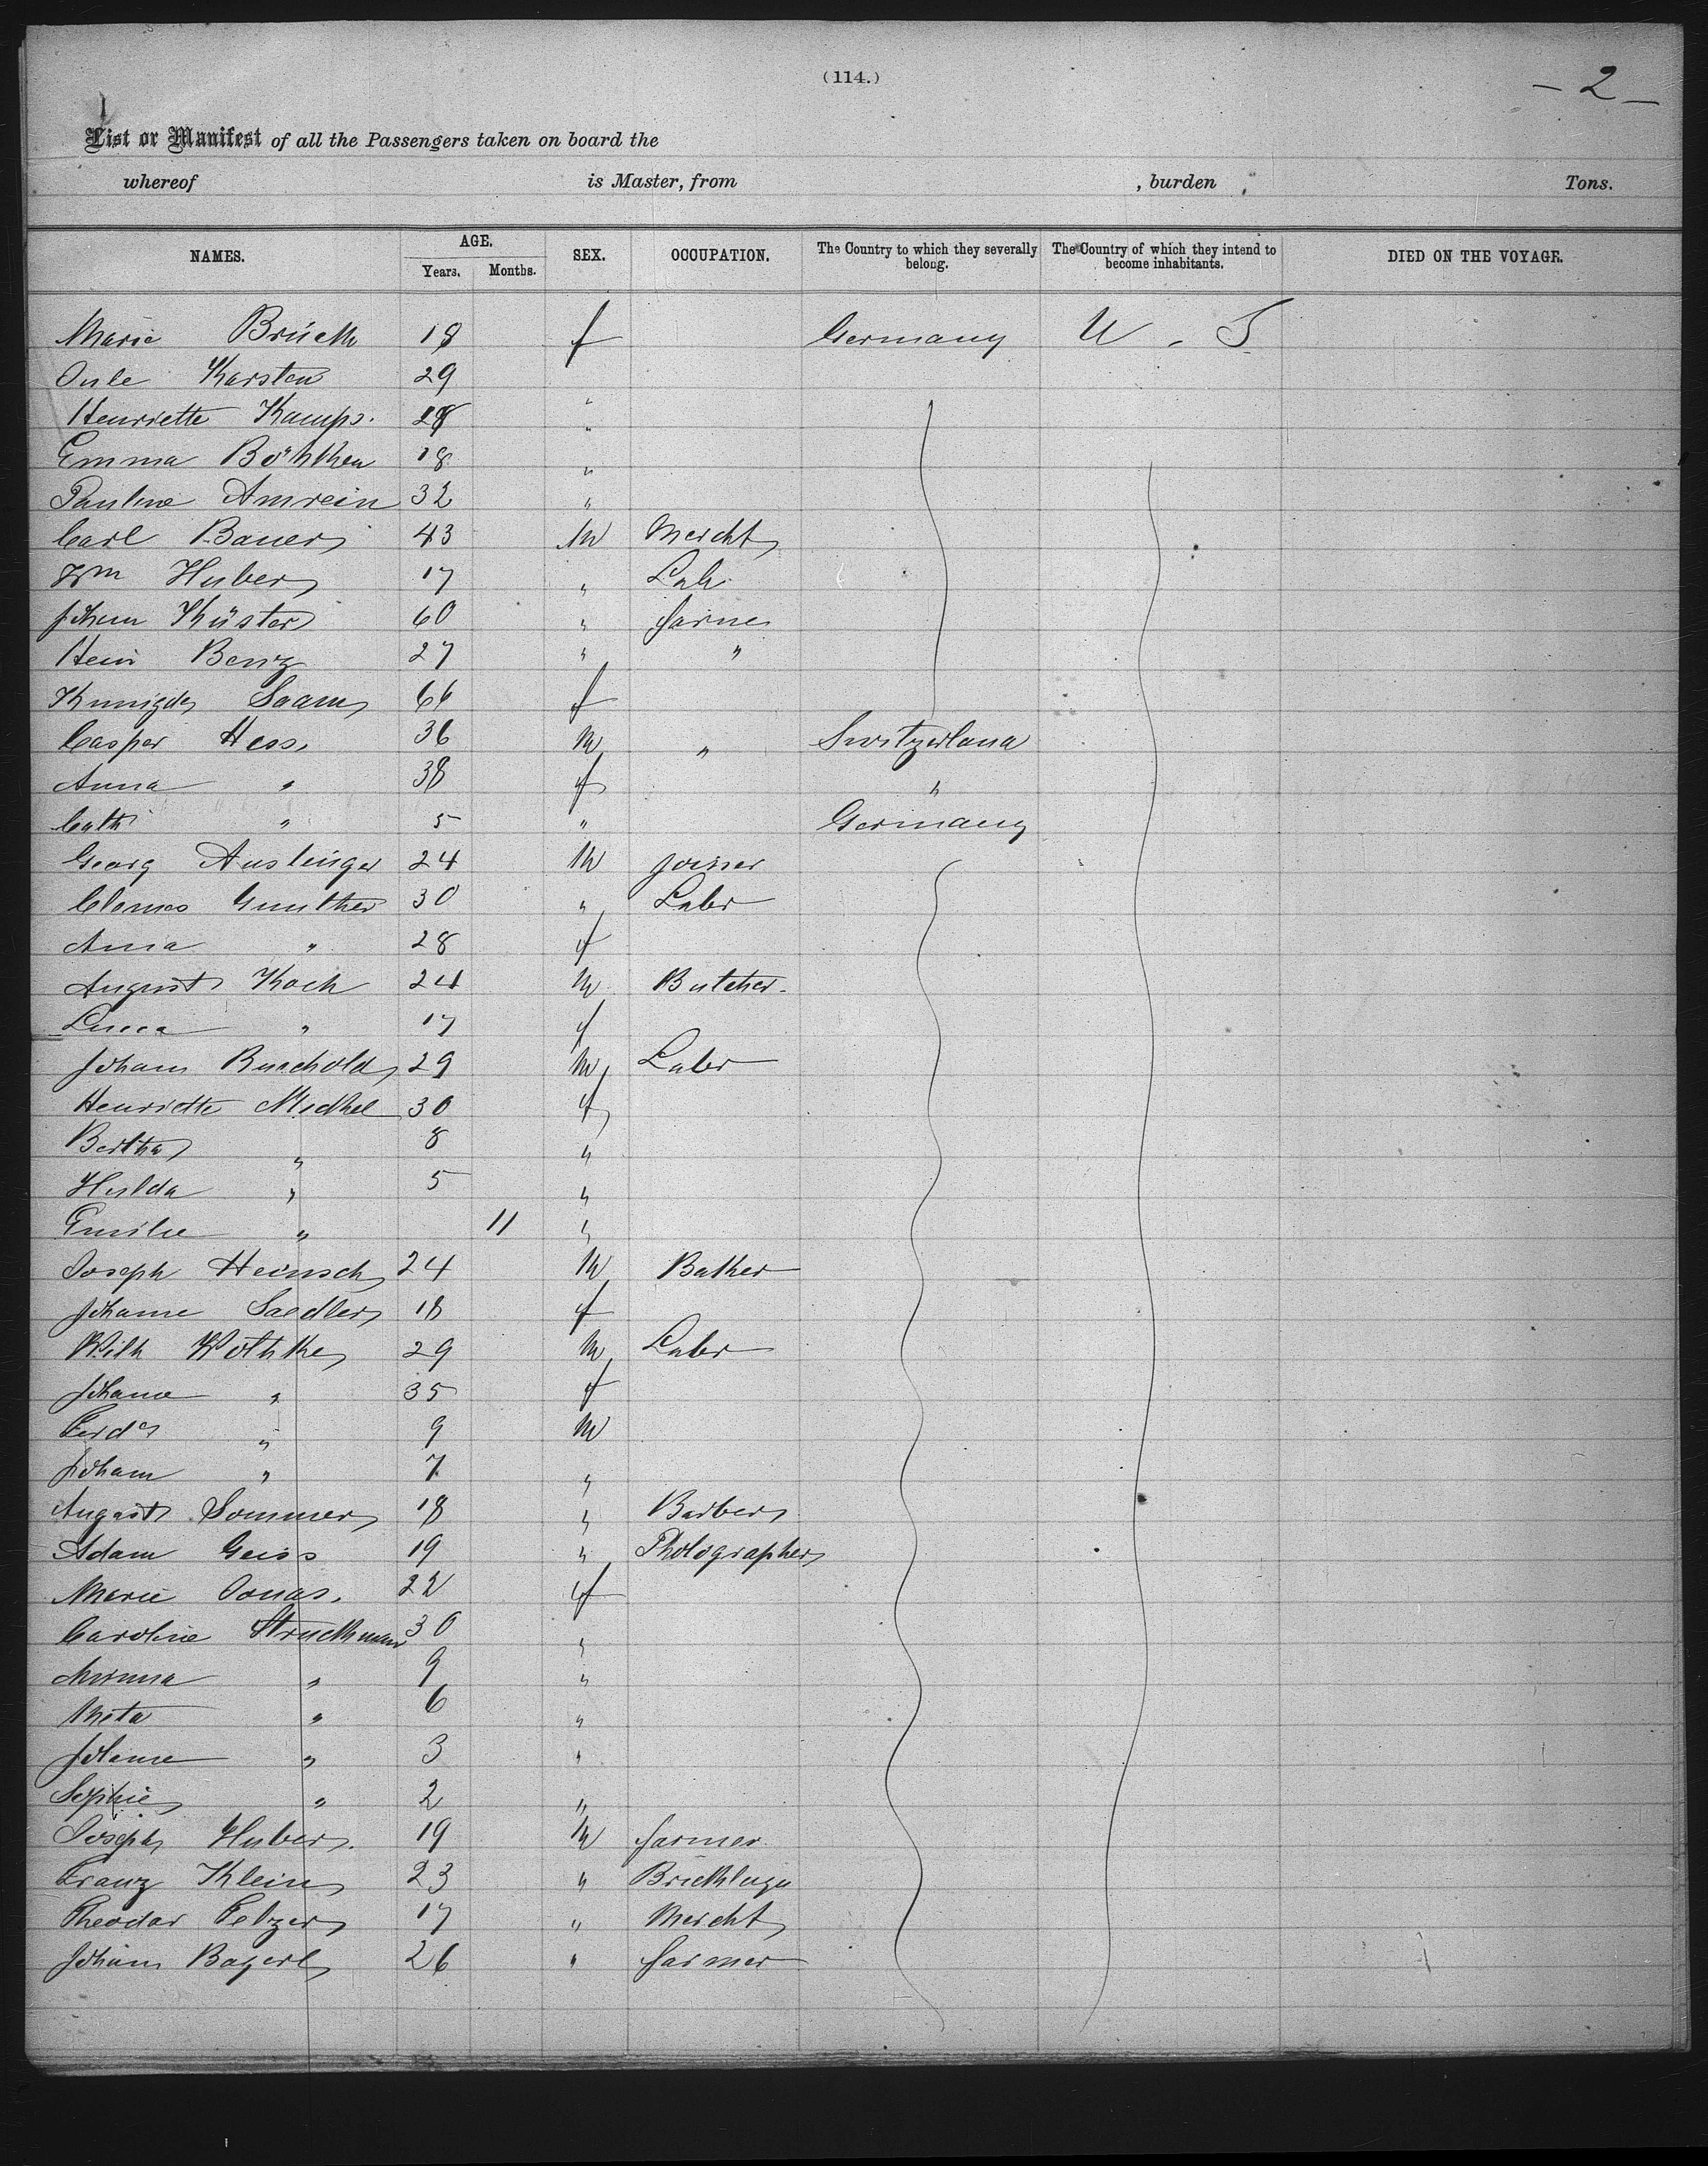 (114.)
- 2 -
List or Manifest of all the Passengers taken on board the
whereof is Master, from , burden Tons.
NAMES. AGE. SEX. OCCUPATION. The Country to which they severally belong. The Country of which they intend to become inhabitants. DIED ON THE VOYAGE.
Years. Months.
Marie Brückk 18 f Germany U. S
Karsten 29
Henriette Kamps. "
Emma Böhlken 18 "
Pauline Amrein 32 "
Carl Bauer 43 M Mercht
Wm Huber 17 " Lab
Johann Küster 60 " farme
Hein Benz 27 " "
Saam 66 f
Casper Hess. 36 M " Switzerland
Anna " 38 f "
Cath " 5 " Germany
Georg Auslinger 24 M joiner
Clemes Gunther 30 " Labr
Anna " 28 f
August Koch 24 M Butcher.
" 17 f
Johann Buschold 29 M Labr
Henriette 30 f
Bertha " 8 "
Hulda " 5 "
Emilie " 11 "
Joseph Heinsch 24 M Baker
Johanne Saedler 18 f
Wilh Wothke 29 M Labr
Johanne " 35 f
Ferd " 9 M
Johann " 7 "
August Sommer 18 " Barber
Adam Geiss 19 " Photographer
Marie Jonas. 22 f
Caroline Struckmann 30 "
Minna " 9 "
Meta " 6 "
Johanne " 3 "
Sophie " 2 "
Joseph Huber. 19 M farmer.
Franz Klein 23 " Bricklaye
Theodor Felzer 17 " Mercht
Johann Bayerl 26 " farmer